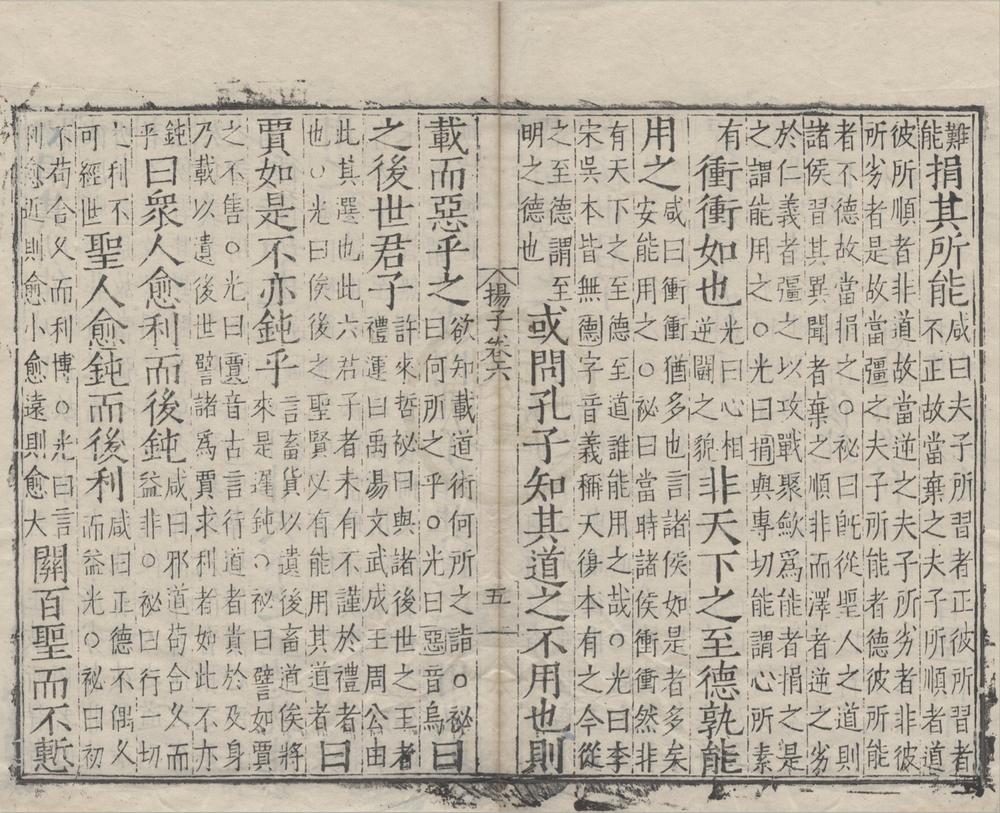 難能捐其所能咸曰夫子所習者正彼所習者不正故當棄之夫子所順者道
彼所順者非道故當逆之夫子所劣者非彼
所劣者是故當彊之夫子所能者德彼所能
者不德故當捐之○祕曰旣從聖人之道則
諸侯習其異聞者棄之順非而澤者逆之劣
於仁義者彊之以攻戰聚斂爲能者捐之是
之謂能用之○光曰捐與專切能謂心所素
有衝衝如也光曰心相逆鬬之貌非天下之至德孰能
用之咸曰衝衝猶多也言諸侯如是者多矣安能用之○祕曰當時諸侯衝衝然非
有天下之至德至道誰能用之哉○光曰李
宋吳本皆無德字音義稱天復本有之今從
之至德謂至明之德也或問孔子知其道之不用也則
揚子卷六 五
載而惡乎之欲知載道術何所之詣○祕曰何所之乎○光曰惡音烏曰
之後世君子許來哲祕曰與諸後世之王者禮運曰禹湯文武成王周公由
此其選也此六君子者未有不謹於禮者也○光曰俟後之聖賢必有能用其道者曰
賈如是不亦鈍乎言畜貨以遺後畜道俟將來是遲鈍○祕曰譬如賈
之不售○光曰賈音古言行道者貴於及身
乃載以遺後世譬諸爲賈求利者如此不亦
鈍乎曰眾人愈利而後鈍咸曰邪道苟合久而益非○祕曰行一切
之利不可經世聖人愈鈍而後利咸曰正德不偶久而益光○祕曰初
不苟合久而利博○光曰言利愈近則愈小愈遠則愈大關百聖而不慙